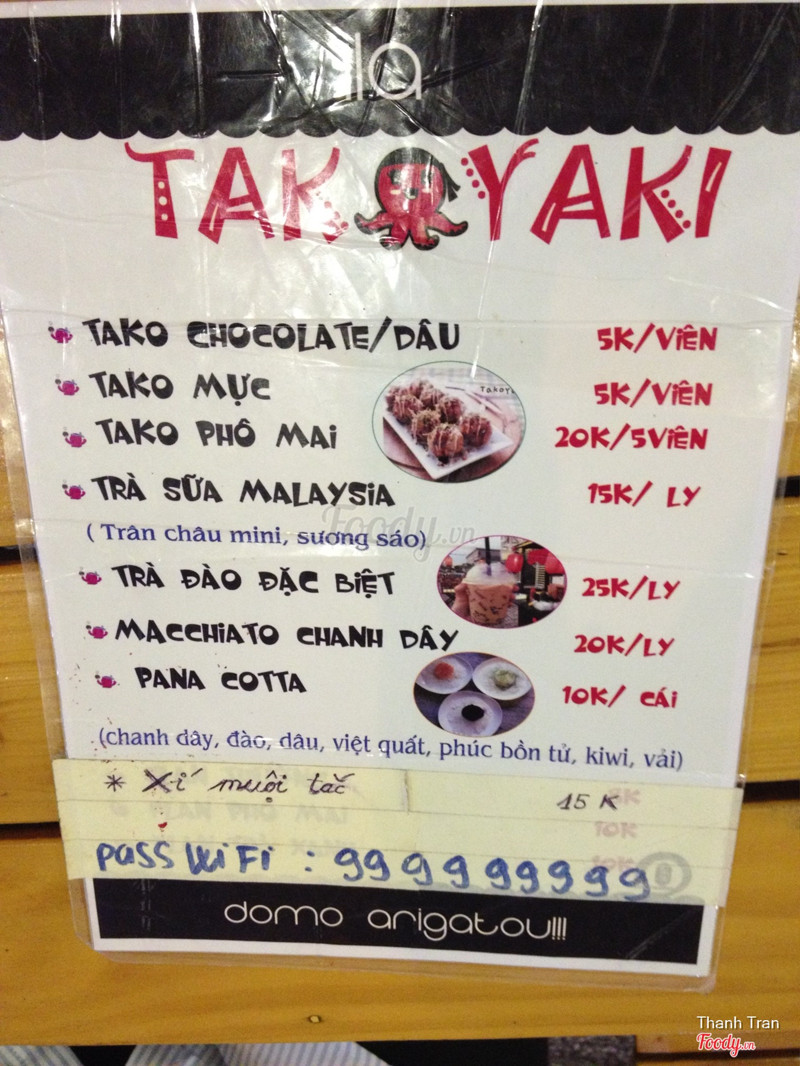 la
TAKOYAKI
TAKO CHOCOLATE/DÂU 5K/VIÊN
TAKO MỰC 5K/VIÊN
TAKO PHÔ MAI 20K/5VIÊN
TRÀ SỮA MALAYSIA 15K/ LY
(Trân châu mini, sương sáo)
TRÀ ĐÀO ĐẶC BIỆT 25K/LY
MACCHIATO CHANH DÂY 20K/LY
PANA COTTA 10K/ CÁI
(chanh dây, đào, dâu, việt quất, phúc bồn tử, kiwi, vải)
* Xí muội tắc 15K
10K
PASS WiFi : 999999999
domo arigatou!!!
Foody.vn
Thanh Tran
Foody.vn